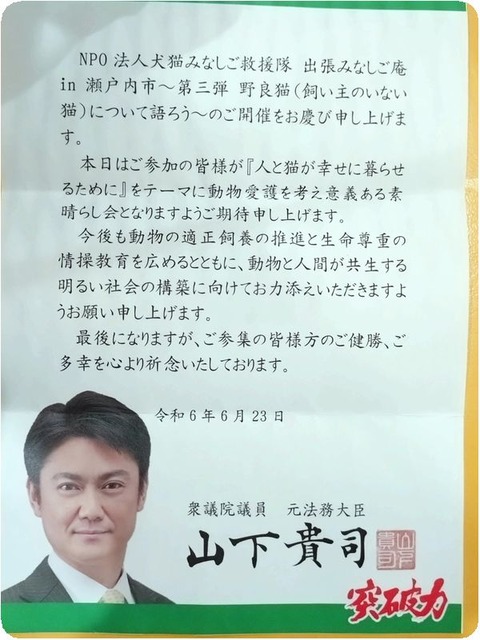 NPO法人犬猫みなしご救援隊 出張みなしご庵
in 瀬戸内市~第三弾 野良猫(飼い主のいない
猫)について語ろう~のご開催をお慶び申し上げま
す。
本日はご参加の皆様が『人と猫が幸せに暮らせ
るために』をテーマに動物愛護を考え意義ある素
晴らし会となりますようご期待申し上げます。
今後も動物の適正飼養の推進と生命尊重の
情操教育を広めるとともに、動物と人間が共生する
明るい社会の構築に向けてお力添えいただきますよ
うお願い申し上げます。
最後になりますが、ご参集の皆様方のご健勝、ご
多幸を心より祈念いたしております。
令和6年6月23日
衆議院議員 元法務大臣
山下貴司
突破力